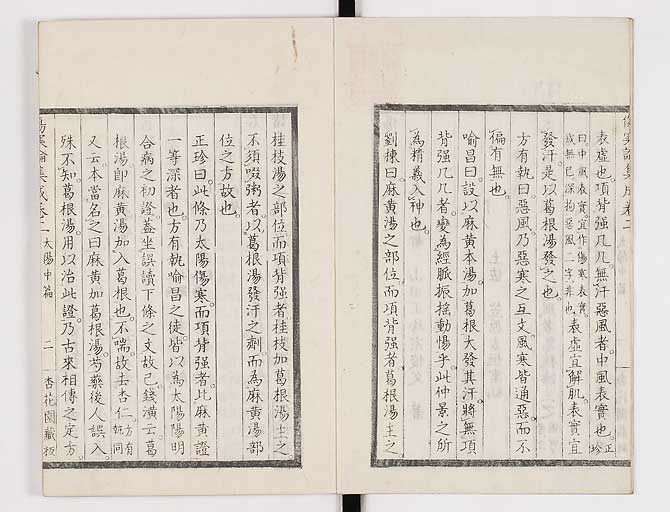 傷寒論集成卷二
表虛也。項背強几几無汗惡風者。中風表實也。正珍
曰。中風表實。宜作傷寒表實。
成無已深拘惡風二字。非也。表虛宜解肌。表實宜
發汗。是以葛根湯發之也。
方有執曰。惡風乃惡寒之互文。風寒皆通惡。而不
偏有無也。
喻昌曰。設以麻黃本湯。加葛根大發其汗。將無項
背強几几者。變為經脈振搖動惕乎。此仲景之所
為精義入神也。
劉棟曰。麻黃湯之部位。而項背強者。葛根湯主之
桂枝湯之部位。而項背強者。桂枝加葛根湯主之。
不須啜粥者。以葛根湯發汗之劑。而為麻黃湯部
位之方故也。
正珍曰。此條乃太陽傷寒。而項背強者。比麻黃證
一等深者也。方有執喻昌之徒。皆以為太陽陽明
合病之初證。蓋坐誤讀下條之文故已。錢潢云。葛
根湯即麻黃湯加入葛根也。不喘。故去杏仁。方有
執同
又云。本當名之曰麻黃加葛根湯。芍藥後人誤入。
殊不知葛根湯。用以治此證。乃古來相傳之定方。
傷寒論集成卷二 太陽中篇 二 杏花園藏板